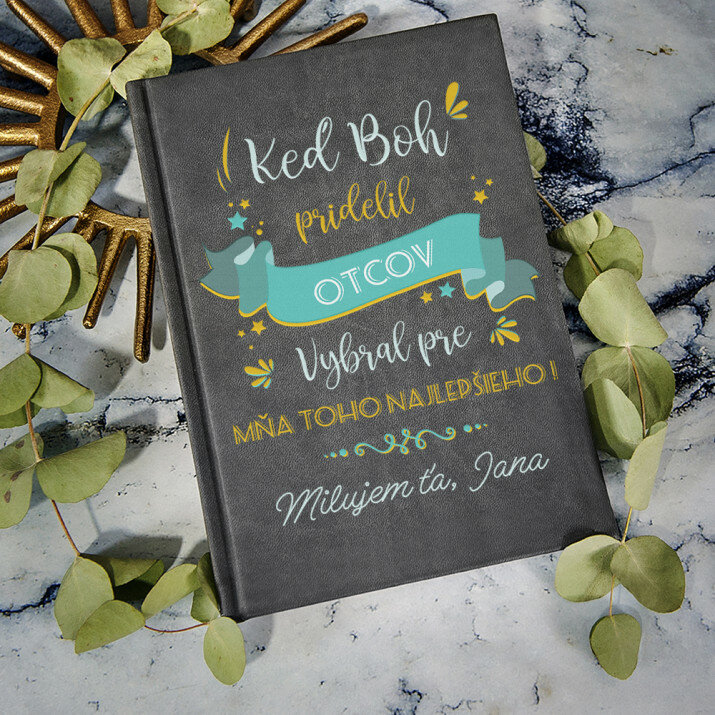 Keď Boh
pridelil
OTCOV
Vybral pre
MŇA TOHO NAJLEPŠIEHO !
Milujem ťa, Jana